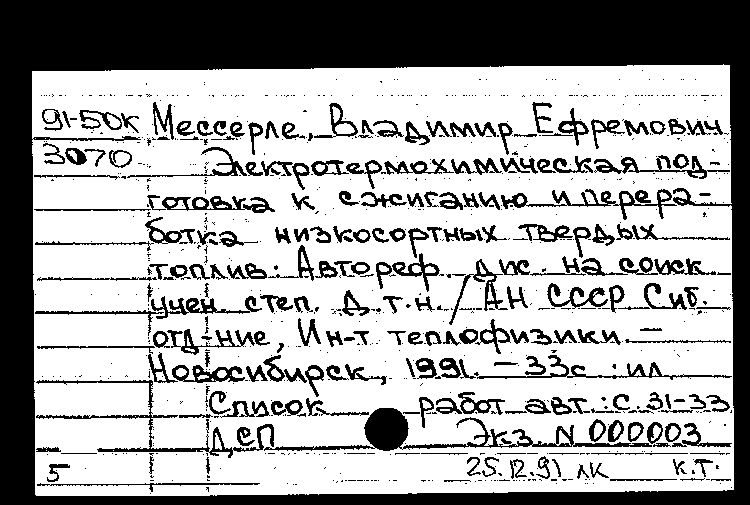 91-50к Мессерле, Владимир Ефремович
3070 Электротермохимическая под-
готовка к сжиганию и перера-
ботка низкосортных твердых
топлив: Автореф. дис. на соиск.
учен. степ. д.т.н. / АН СССР Сиб.
отд-ние, Ин-т теплофизики. —
Новосибирск, 1991. — 33с : ил.
Список работ авт.: с. 31-33
ДСП Экз. N 000003
5 25.12.91 лк к.т.